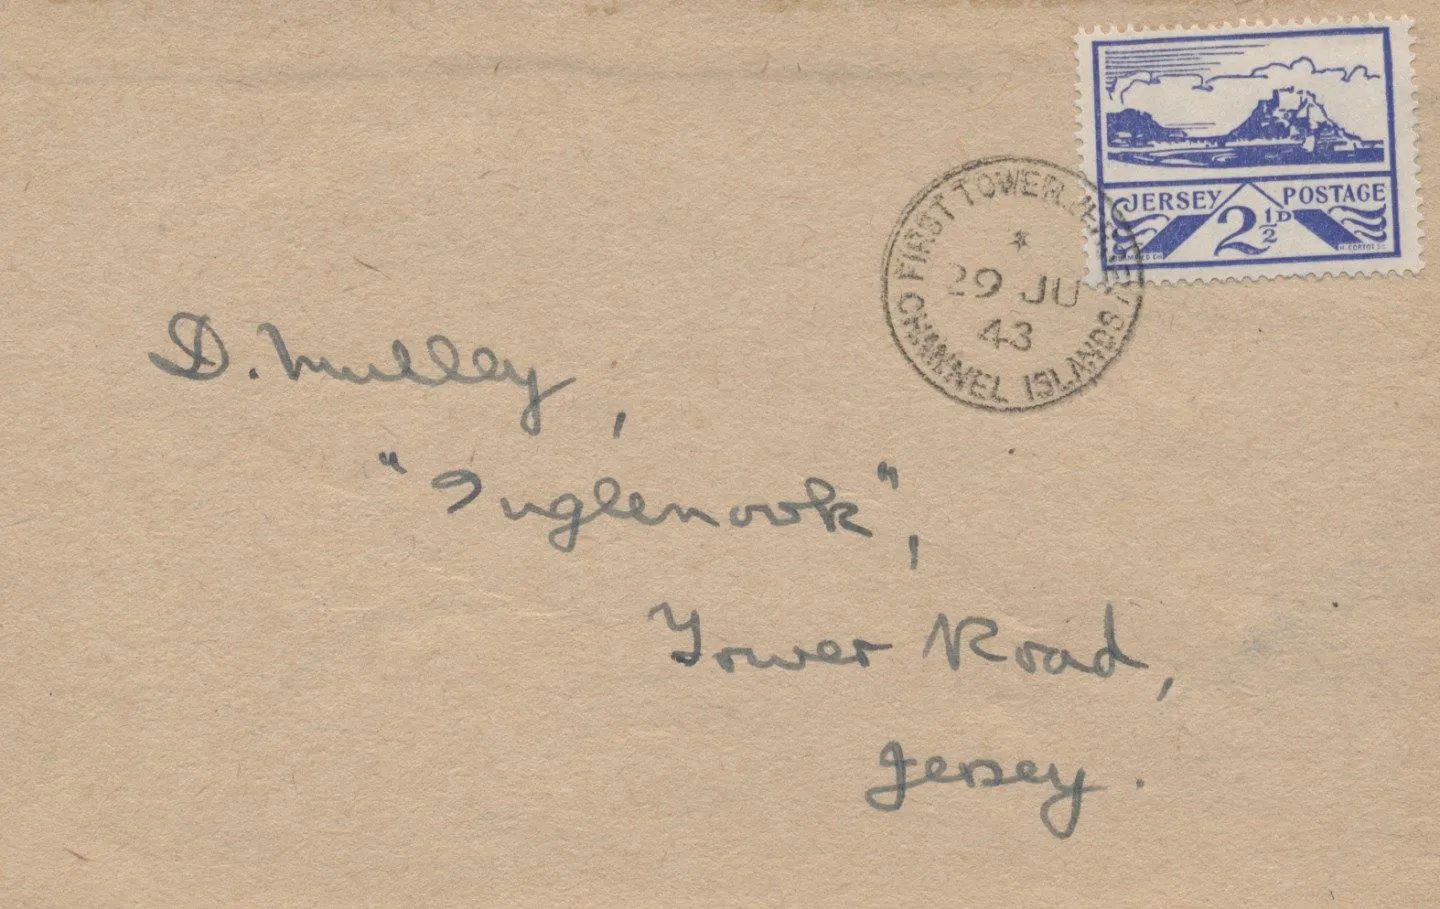 JERSEY POSTAGE
2½D
FIRST TOWER. JERSEY
*
29 JU
43
CHANNEL ISLANDS
D. Mulley,
"Inglenook",
Tower Road,
Jersey.